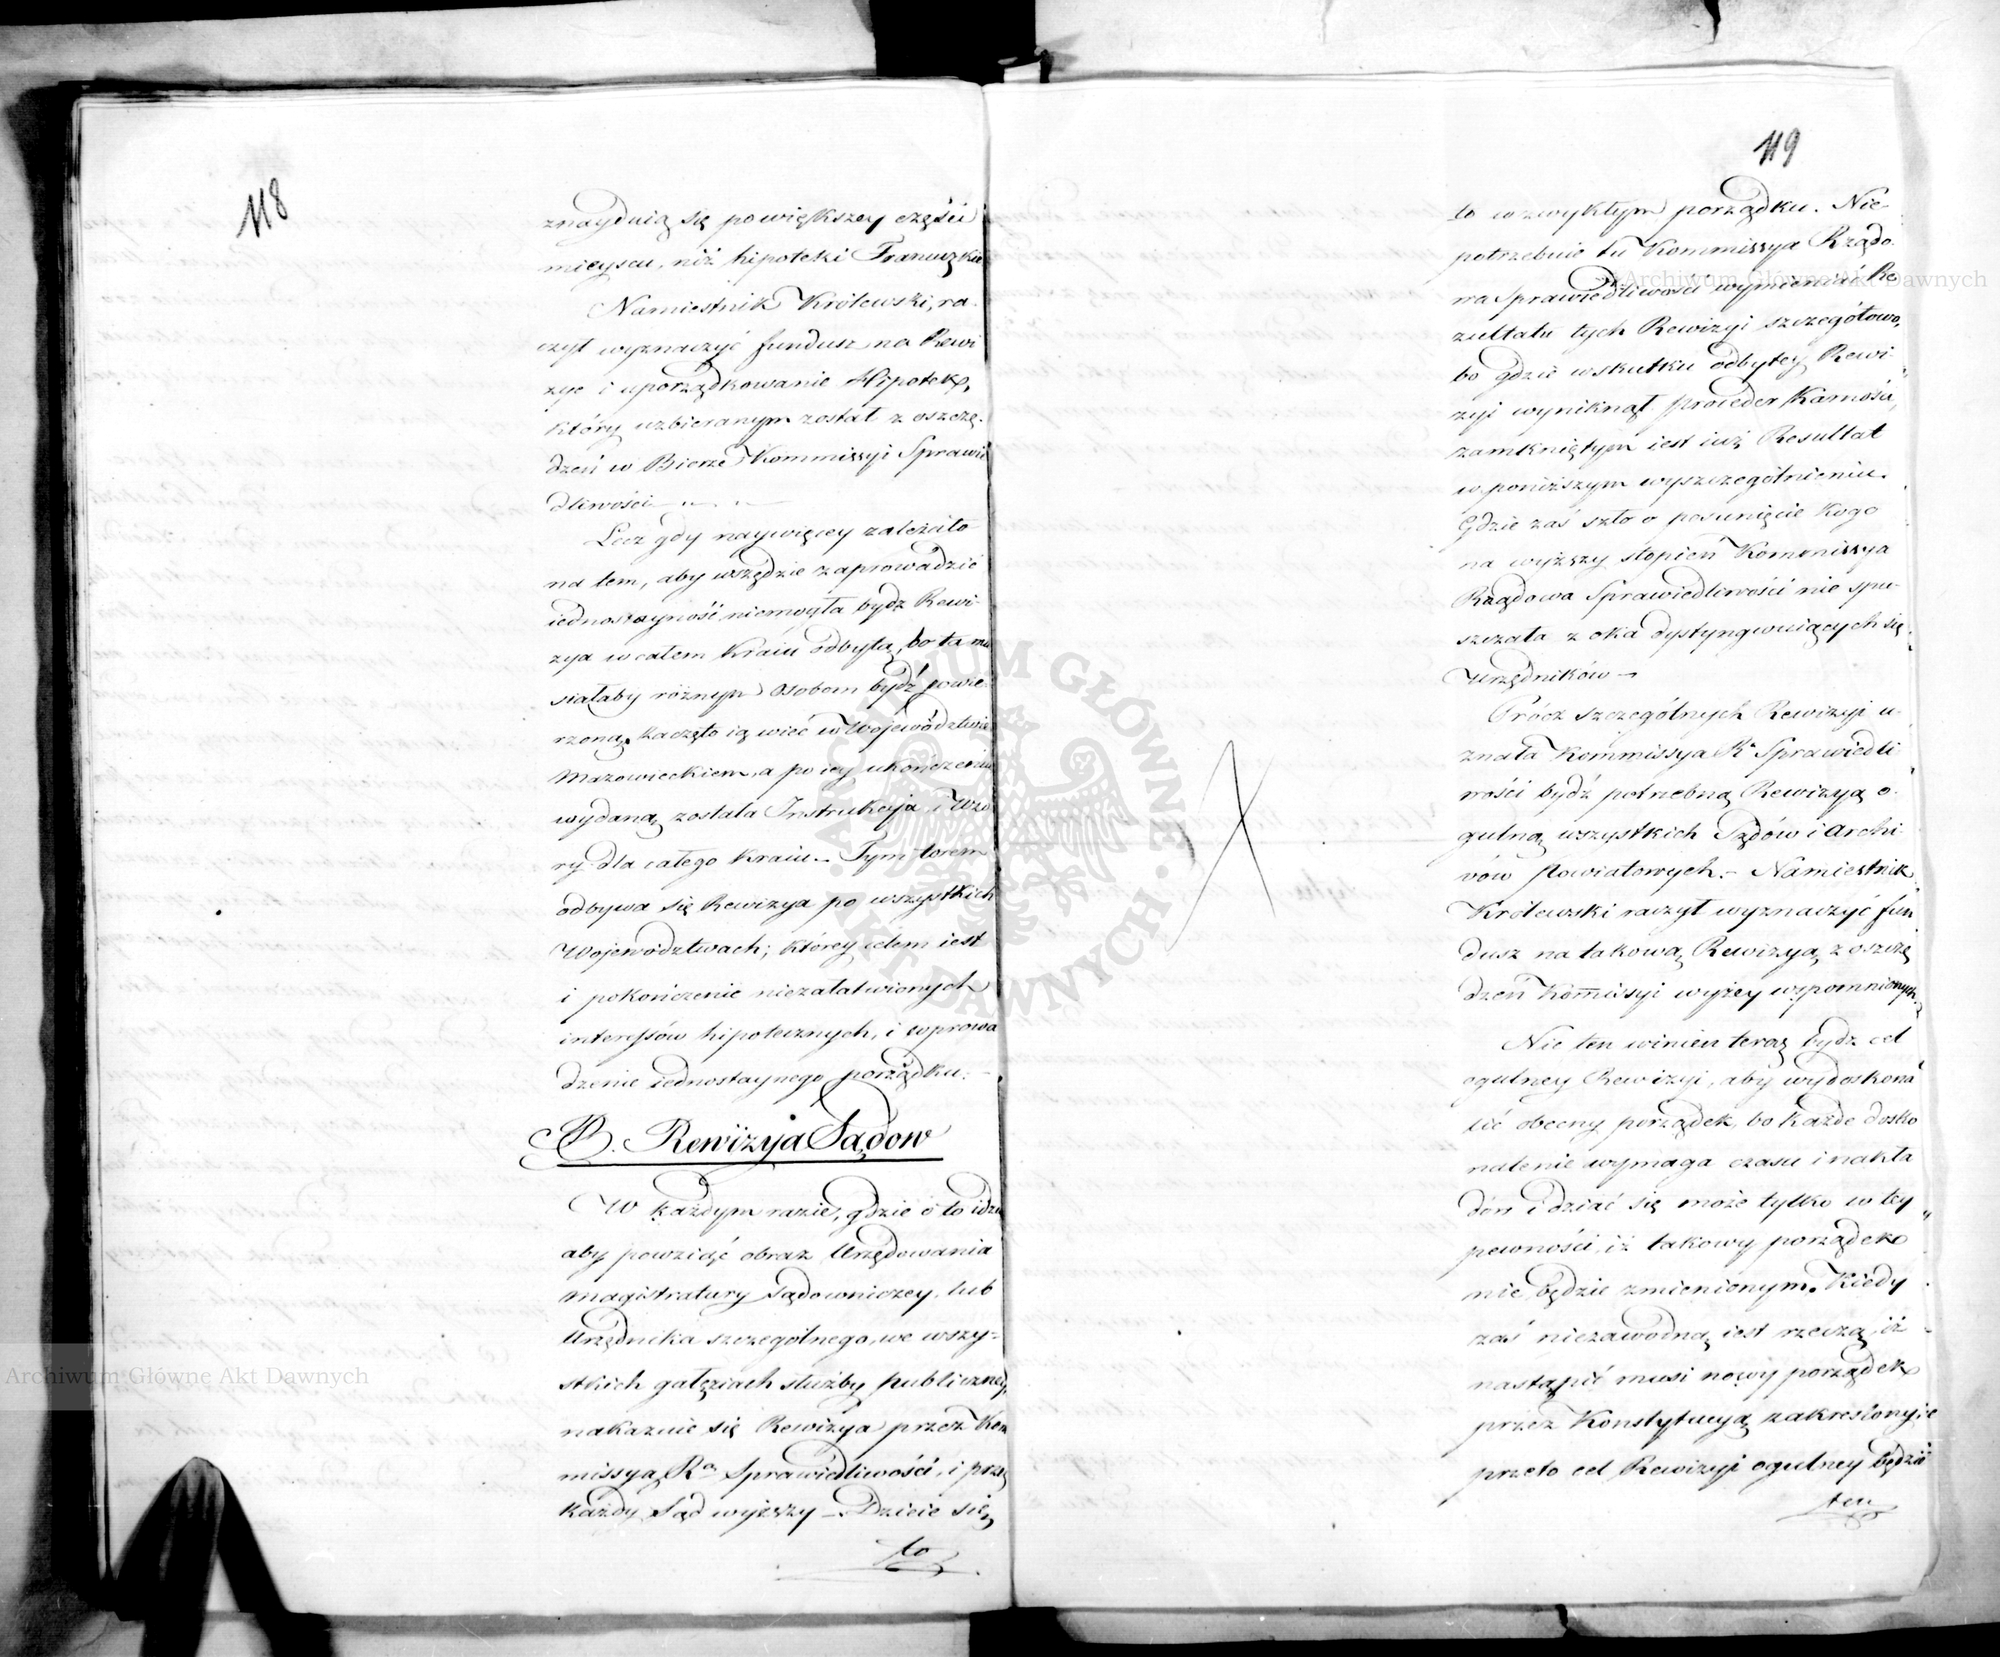 118
znayduią się powiększey części
mieyscu, niż hipoteki Francuzkie
Namiestnik Królewski, ra-
czył wyznaczyć fundusz na Rewi
zye i uporządkowanie Hipotek,
który uzbieranym został z oszczę-
dzeń w Bierze Kommissyi Sprawie
dliwości
Lecz gdy naywięcey zależało
na tem, aby wszędzie zaprowadzić
iednostayność niemogła bydz Rewi-
zya w całem Kraiu odbyta, bo ta mu
siałaby różnym osobom bydź powie-
rzoną. Zaczęto ią więc w Województwie
Mazowieckiem, a po iey ukończeniu
wydaną została Instrukcja i Wzo
ry dla całego Kraiu. Tym torem
odbywa się Rewizya po wszystkich
Województwach; którey celem iest
i pokończenie niezałatwionych
interessów hipotecznych, i wprowa
dzenie iednostaynego porządku.
B. Rewizya Sądow
W każdym razie, gdzie o to idzie
aby powziąść obraz Urzędowania
Magistratury Sądowniczey, lub
Urzędnika szczególnego, we wszy-
stkich gałęziach służby publiczney,
nakazuie się Rewizya przez Kom
missyą Rą Sprawiedliwości, i przez
każdy Sąd wyższy – Dzieie się
to
119
to w zwykłym porządku. Nie-
potrzebuie tu Kommissya Rządo-
wa Sprawiedliwości wymieniać Re
zultatu tych Rewizyi szczegółowo,
bo gdzie w skutku odbytey Rewi-
zyi wyniknął proceder Karności,
zamkniętym iest iuż Resultat
w poniższym wyszczególnieniu.
Gdzie zaś szło o posunięcie kogo
na wyższy stopień Kommissya
Rządowa Sprawiedliwości nie spu-
szczała z oka dystyngwuiących się
Urzędników –
Prócz szczególnych Rewizyi u-
znała Kommissya R. Sprawiedli
wości bydź potrzebną Rewizyą o-
gulną wszystkich Sądów i Archi-
vów Powiatowych. – Namiestnik
Królewski raczył wyznaczyć fun
dusz na takową Rewizyą z oszczę
dzeń Komissyi wyżey wspomnionych.
Nie ten winien teraz bydz cel
ogulney Rewizyi, aby wydoskona
lić obecny porządek, bo każde dosko
nalenie wymaga czasu i nakła
dów i dziać się może tylko w tey
pewności, iż takowy porządek
nie będzie zmienionym. Kiedy
zaś niezawodną iest rzeczą, iż
nastąpić musi nowy porządek
przez Konstytucyą zakreślony, ie
przeto cel Rewizyi ogulney będzie
ten
ARCHIWUM GŁÓWNE AKT DAWNYCH
Archiwum Główne Akt Dawnych
Archiwum Główne Akt Dawnych